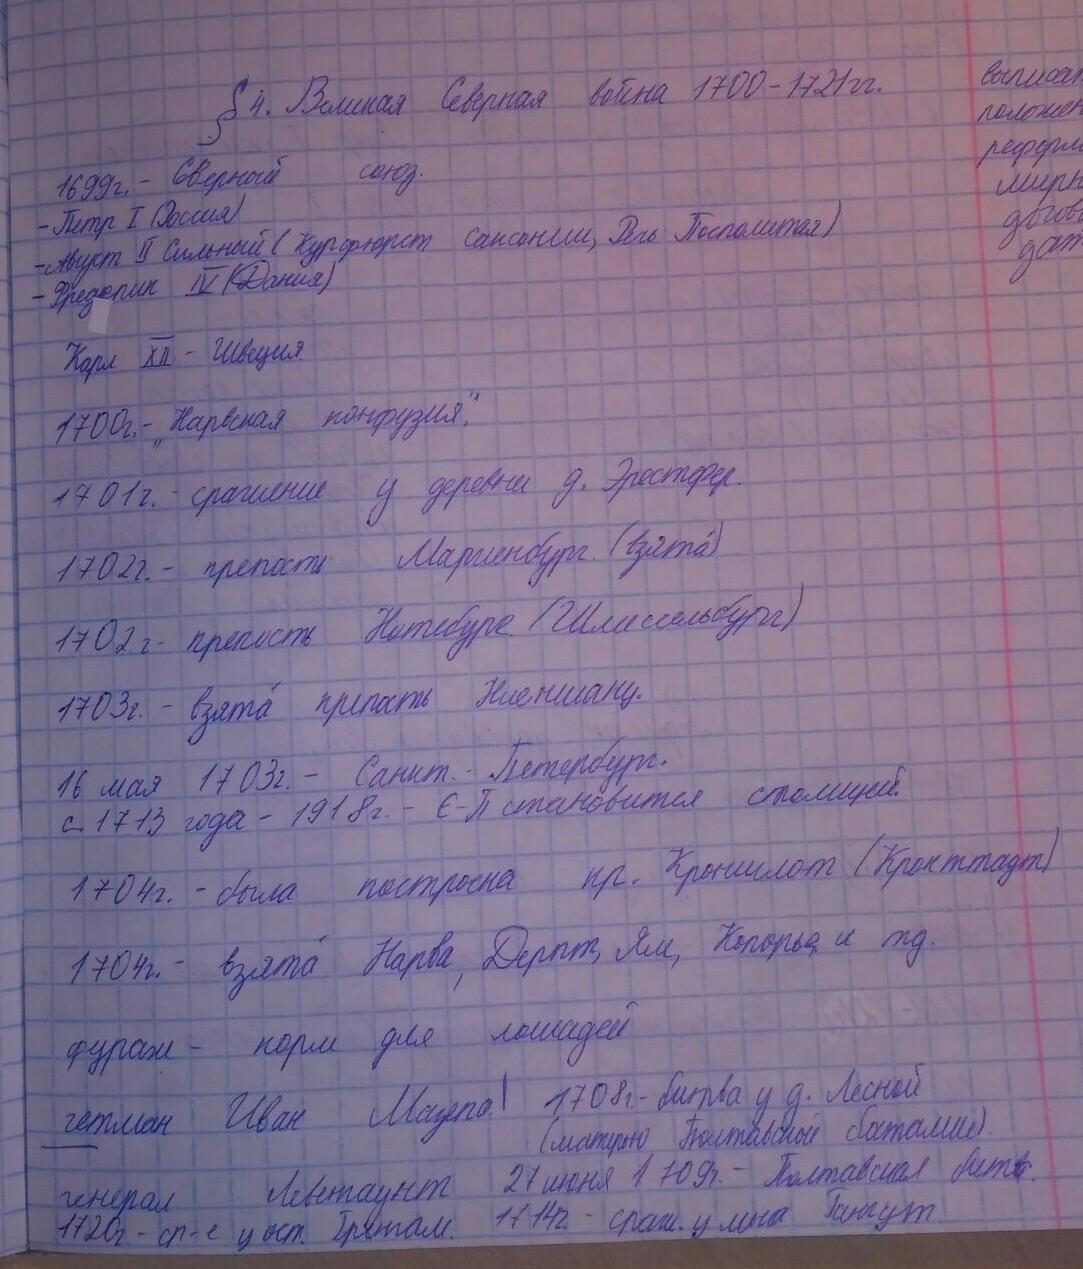 § 4. Великая Северная война 1700-1721гг.
1699г. - Сверный союз.
- Петр I (Россия)
- Август II Сильный (Курфюрст Саксонии, Речь Посполитая)
- Фредерик IV (Дания)
Карл XII - Швеция
1700г. - „Нарвская конфузия".
1701г. - сражение у деревни д. Эрестфер.
1702г. - крепость Мариенбург. (взята)
1702г - крепость Нотебург. (Шлиссельбург)
1703г. - взята крепость Ниеншанц.
16 мая 1703г. - Санкт. - Петербург.
с 1713 года - 1918г. - С-П становится столицей.
1704г. - была построена кр. Кроншлот (Кронштадт)
1704г. - взята Нарва, Дерпт, Ям, Копорье, и тд.
фураж - корм для лошадей
гетман Иван Мазепа! 1708г - битва у д. Лесной
(матерью Полтавской баталии).
генерал Левенгаупт 27 июня 1709г. - Полтавская битв.
1720г - ср-е у ост. Гренгам. 1714г - сраж. у мыса Гангут
выписат
положен
реформ
мирн
догов
дат